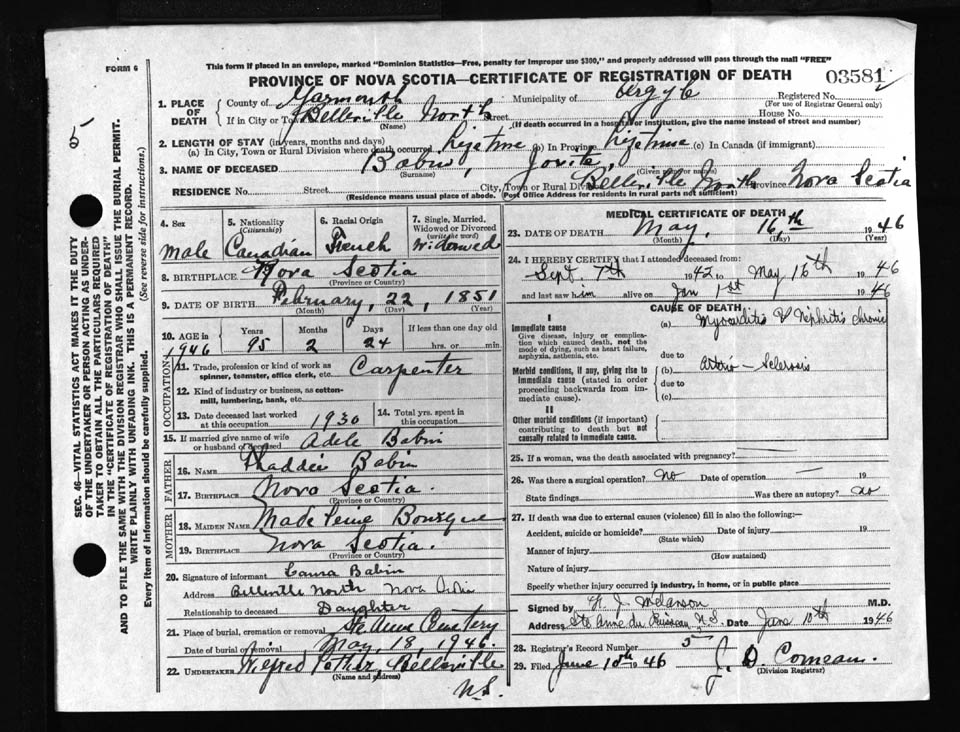 This form if placed in an envelope, marked "Dominion Statistics—Free, penalty for improper use $300," and properly addressed will pass through the mail "FREE"
FORM 6
PROVINCE OF NOVA SCOTIA—CERTIFICATE OF REGISTRATION OF DEATH
03581
5
SEC. 46—VITAL STATISTICS ACT MAKES IT THE DUTY
OF THE UNDERTAKER OR PERSON ACTING AS UNDER-
TAKER TO OBTAIN ALL THE PARTICULARS REQUIRED
IN THE "CERTIFICATE OF REGISTRATION OF DEATH"
AND TO FILE THE SAME WITH THE DIVISION REGISTRAR WHO SHALL ISSUE THE BURIAL PERMIT.
WRITE PLAINLY WITH UNFADING INK. THIS IS A PERMANENT RECORD.
Every item of Information should be carefully supplied. (See reverse side for instructions.)
1. PLACE OF DEATH
County of Yarmouth Municipality of Argyle Registered No.
(For use of Registrar General only)
If in City or Town Belleville North Street House No.
(Name) (If death occurred in a hospital or institution, give the name instead of street and number)
2. LENGTH OF STAY (in years, months and days)
(a) In City, Town or Rural Division where death occurred Lifetime (b) In Province Lifetime (c) In Canada (if immigrant)
3. NAME OF DECEASED Babin, Jovite
(Surname) (Given name or names)
RESIDENCE No. Street City, Town or Rural Division Belleville North Province Nova Scotia
(Residence means usual place of abode. Post Office Address for Residents in rural parts not sufficient)
4. Sex Male
5. Nationality (Citizenship) Canadian
6. Racial Origin French
7. Single, Married, Widowed or Divorced (write the word) Widowed
8. BIRTHPLACE Nova Scotia
(Province or Country)
9. DATE OF BIRTH February, 22, 1851
(Month) (Day) (Year)
10. AGE in 1946 Years 95 Months 2 Days 24 If less than one day old hrs. or min.
OCCUPATION
11. Trade, profession or kind of work as spinner, teamster, office clerk, etc. Carpenter
12. Kind of industry or business, as cotton-mill, lumbering, bank, etc.
13. Date deceased last worked at this occupation 1930
14. Total yrs. spent in this occupation
15. If married give name of wife or husband of deceased Adele Babin
FATHER
16. NAME Thaddie Babin
17. BIRTHPLACE Nova Scotia
(Province or Country)
MOTHER
18. MAIDEN NAME Madeleine Bourque
19. BIRTHPLACE Nova Scotia.
(Province or Country)
20. Signature of informant Laura Babin
Address Belleville North Nova Scotia
Relationship to deceased Daughter
21. Place of burial, cremation or removal Ste Anne Cemetery
Date of burial or removal May, 18, 1946.
22. UNDERTAKER Wilfred Pothier Belleville
(Name and address)
N.S.
MEDICAL CERTIFICATE OF DEATH
23. DATE OF DEATH May, 16th 1946
(Month) (Day) (Year)
24. I HEREBY CERTIFY that I attended deceased from:
Sept. 7th 1942 to May 16th 1946
and last saw him alive on Jan 1st 1946
CAUSE OF DEATH
I
Immediate cause
Give disease, injury or complication which caused death, not the mode of dying, such as heart failure, asphyxia, asthenia, etc.
(a) Myocarditis & Nephritis chronic
due to
Morbid conditions, if any, giving rise to immediate cause (stated in order proceeding backwards from immediate cause).
(b) Arterio-Sclerosis
due to
(c)
II
Other morbid conditions (if important) contributing to death but not causally related to immediate cause.
25. If a woman, was the death associated with pregnancy?
26. Was there a surgical operation? No Date of operation — 19
State findings Was there an autopsy? no
27. If death was due to external causes (violence) fill in also the following:—
Accident, suicide or homicide? Date of injury 19
(State which)
Manner of injury
(How sustained)
Nature of injury
Specify whether injury occurred in industry, in home, or in public place
Signed by Melanson M.D.
Address Ste. Anne du Ruisseau N.S. Date June 10th 1946
28. Registrar's Record Number 5
29. Filed June 10th 1946 J. D. Comeau.
(Division Registrar)